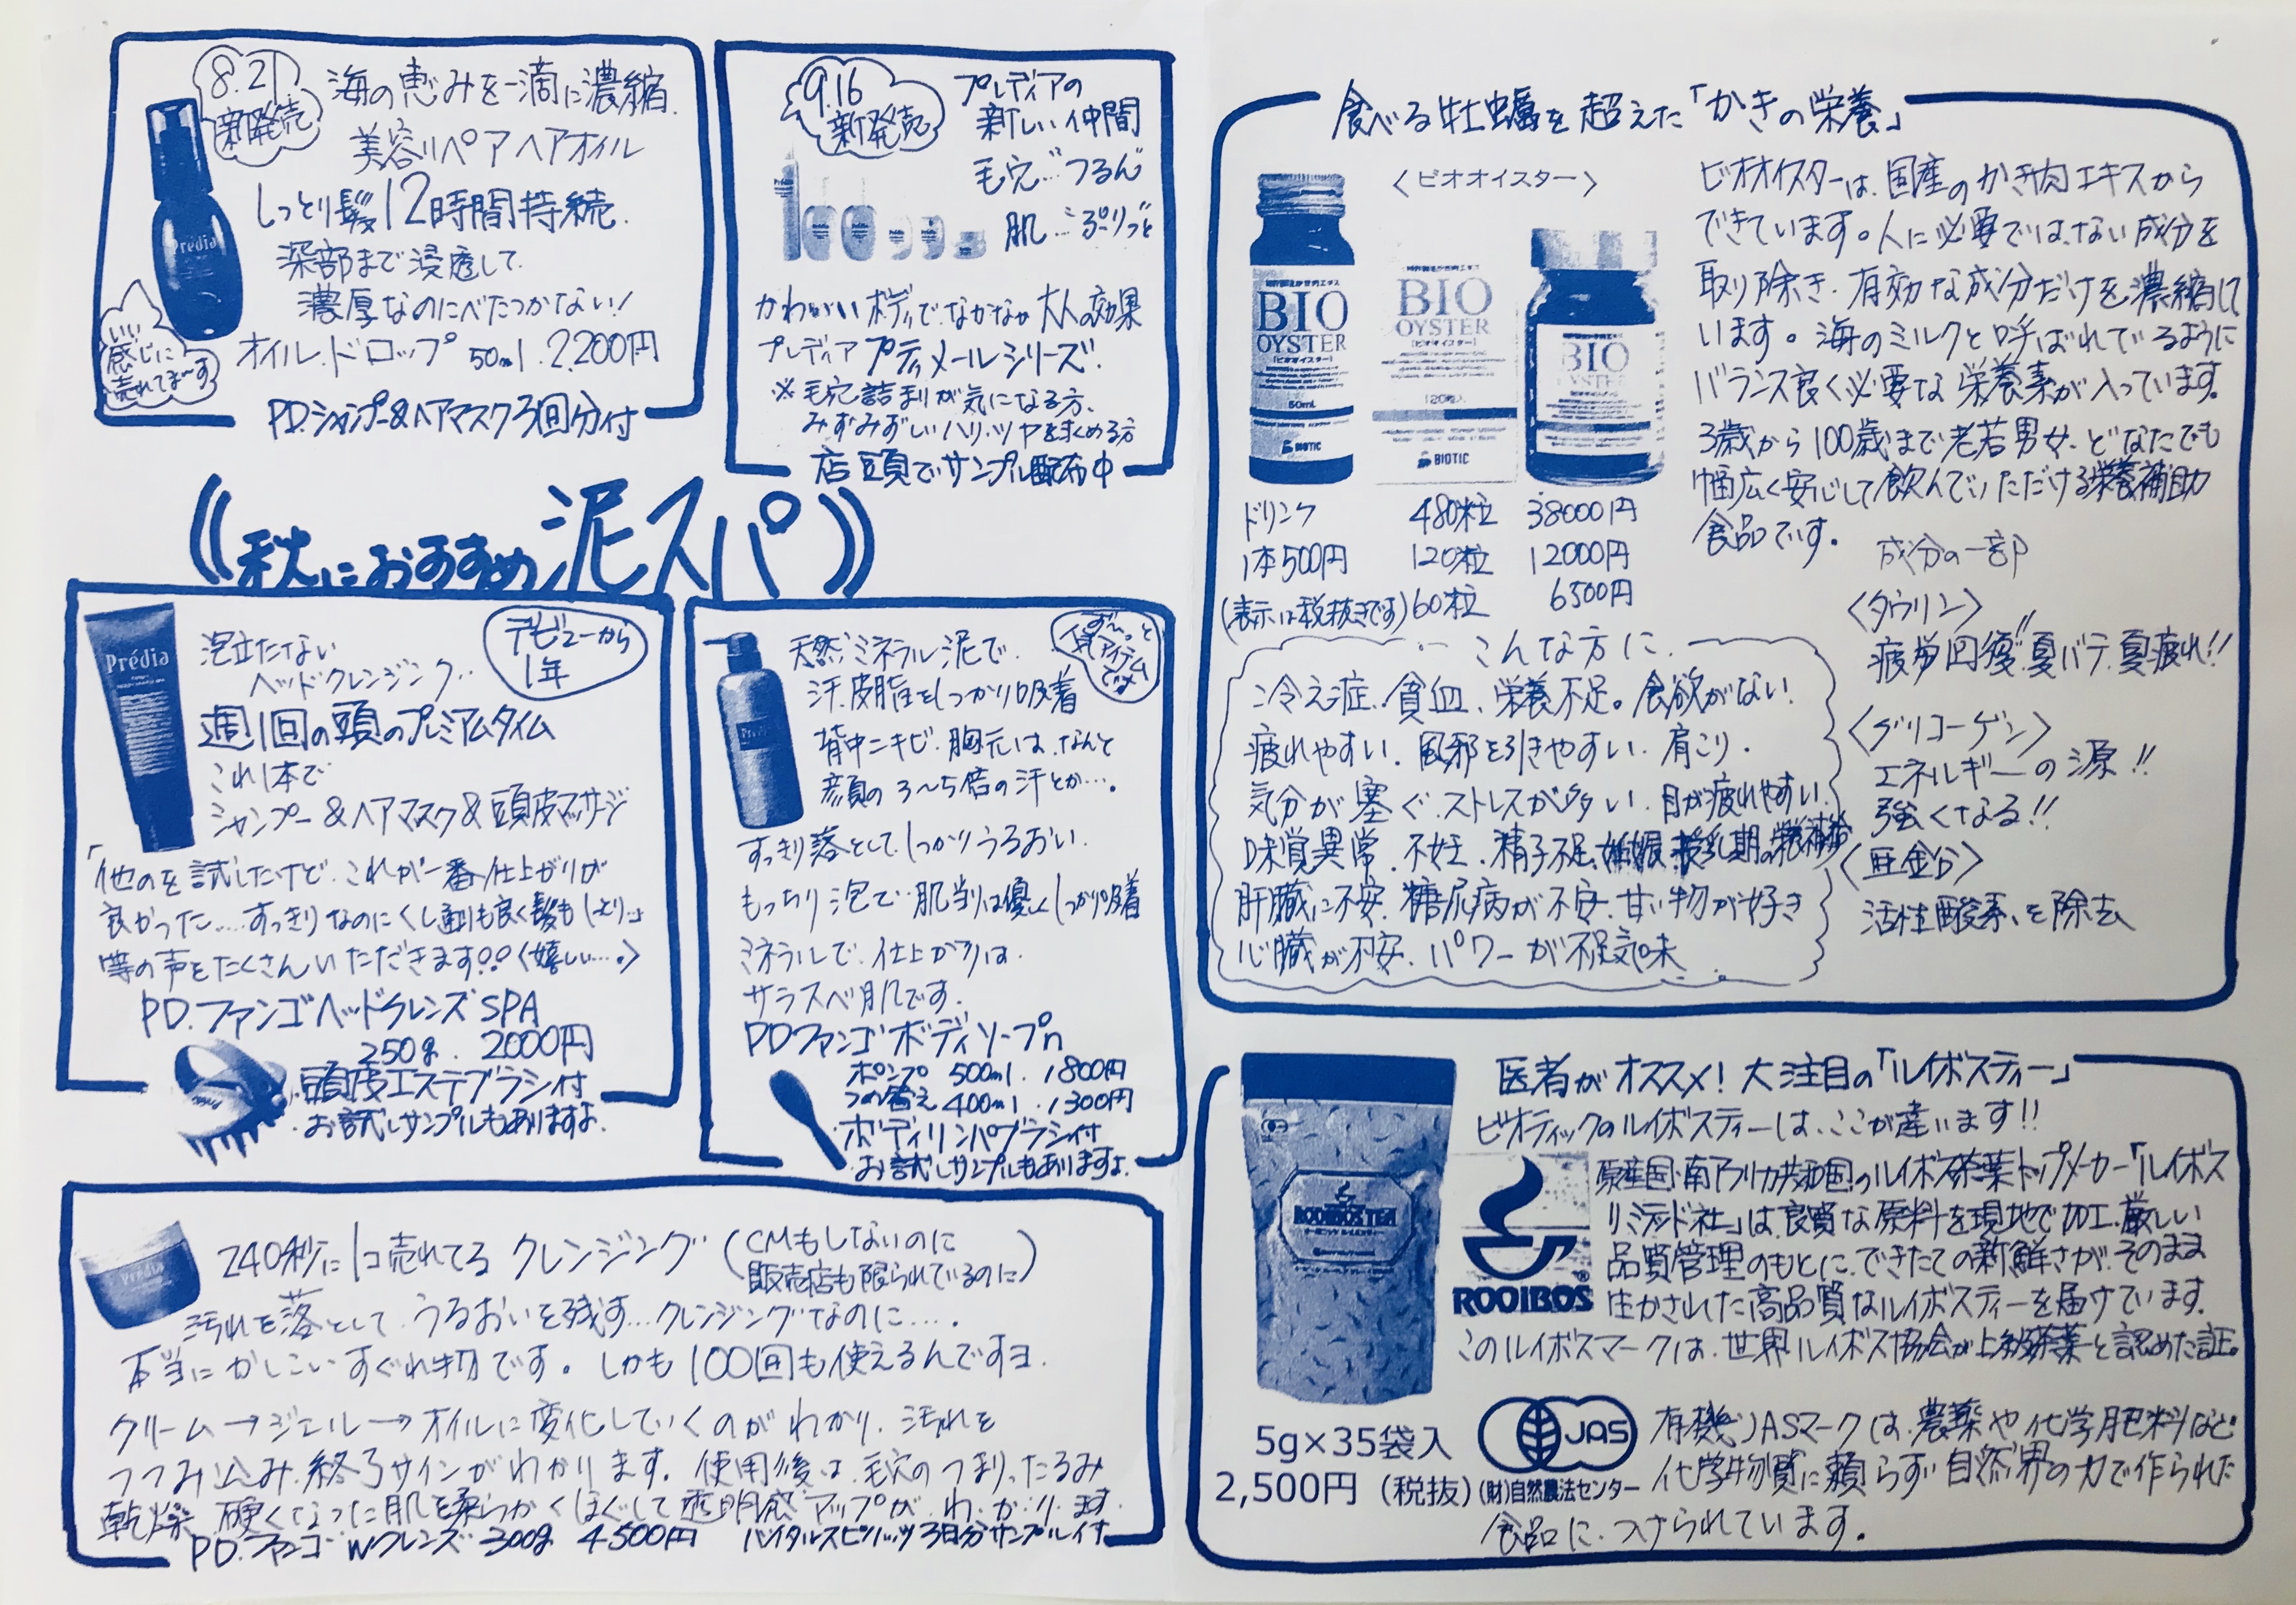 8.21
新発売
海の恵みを一滴に濃縮.
美容リペアヘアオイル
しっとり髪12時間持続.
深部まで浸透して.
濃厚なのにべたつかない!
いい
感じに
売れてま〜す
オイル.ドロップ 50ml. 2,200円
PD.シャンプー&ヘアマスク3回分付
Prédia
9.16
新発売
プレディアの
新しい仲間
毛穴…つるん
肌…ぷりっと
かわいいボディで.なかなか大人の効果
プレディア プティメールシリーズ.
※毛穴詰まりが気になる方、
みずみずしいハリ.ツヤを求める方
店頭でサンプル配布中
《秋におすすめ泥スパ》
Prédia
泡立たない
ヘッドクレンジング..
デビューから
1年
週1回の頭のプレミアムタイム
これ1本で
シャンプー&ヘアマスク&頭皮マッサージ
「他のを試したけど.これが一番仕上がりが
良かった....すっきりなのにくし通りも良く髪もしっとり.」
等の声をたくさんいただきます!!(嬉しい....)
PD.ファンゴヘッドクレンズSPA
250g. 2000円
頭皮エステブラシ付
お試しサンプルもありますよ.
Prédia
天然ミネラル泥で.
汗.皮脂をしっかり吸着
ず〜っと
人気アイテム
です
背中ニキビ.胸元は.なんと
顔の3〜5倍の汗とか....
すっきり落としてしっかりうるおい.
もっちり泡で..肌当りは優しくしっかり吸着
ミネラルで.仕上がりは.
サラスベ肌です.
PDファンゴボディソープn
ポンプ 500ml. 1800円
つめ替え 400ml. 1300円
ボディリンパブラシ付
お試しサンプルもありますよ.
240秒に1コ売れてるクレンジング
(CMもしないのに
販売店も限られているのに)
汚れを落として.うるおいを残す...クレンジングなのに.....
本当にかしこいすぐれ物です。しかも100回も使えるんですヨ.
クリーム→ジェル→オイルに変化していくのがわかり.汚れを
つつみ込み.終了サインがわかります。使用後は.毛穴のつまり.たるみ
乾燥.硬くなった肌を柔らかくほぐして透明感アップが.わ.か.り.ます.
PD.ファンゴ Wクレンズ 300g 4500円 バイタルスピリッツ3日分サンプル付
食べる牡蠣を超えた「かきの栄養」
〈ビオオイスター〉
BIO
OYSTER
[ビオオイスター]
50mL
BIOTIC
BIO
OYSTER
[ビオオイスター]
120粒入
BIOTIC
BIO
OYSTER
ビオオイスターは.国産のかき肉エキスから
できています。人に必要ではない成分を
取り除き.有効な成分だけを濃縮して
います。海のミルクと呼ばれているように
バランス良く必要な栄養素が入っています。
3歳から100歳まで老若男女.どなたでも
幅広く安心して飲んでいただける栄養補助
食品です。
ドリンク 480粒 38000円
1本500円 120粒 12000円
(表示は税抜きです) 60粒 6500円
こんな方に.
冷え症.貧血、栄養不足。食欲がない.
疲れやすい.風邪を引きやすい.肩こり.
気分が塞ぐ.ストレスが多い.目が疲れやすい.
味覚異常.不妊.精子不足.妊娠.授乳期の栄養補給
肝臓に不安.糖尿病が不安.甘い物が好き
心臓が不安.パワーが不足気味
成分の一部
〈タウリン〉
疲労回復!!夏バテ.夏疲れ!!
〈グリコーゲン〉
エネルギーの源!!
強くなる!!
〈亜鉛〉
活性酸素.を除去
医者がオススメ!大注目の「ルイボスティー」
ビオティックのルイボスティーは.ここが違います!!
原産国.南アフリカ共和国のルイボス茶葉トップメーカー「ルイボス
リミテッド社」は良質な原料を現地で加工.厳しい
品質管理のもとに.できたての新鮮さが.そのまま
生かされた高品質なルイボスティーを届けています.
このルイボスマークは.世界ルイボス協会が上級茶葉と認めた証。
ROOIBOS TEA
ROOIBOS®
5g×35袋入
2,500円 (税抜)
JAS
(財)自然農法センター
有機JASマークは.農薬や化学肥料など
化学物質に頼らず自然界の力で作られた
食品に.つけられています.